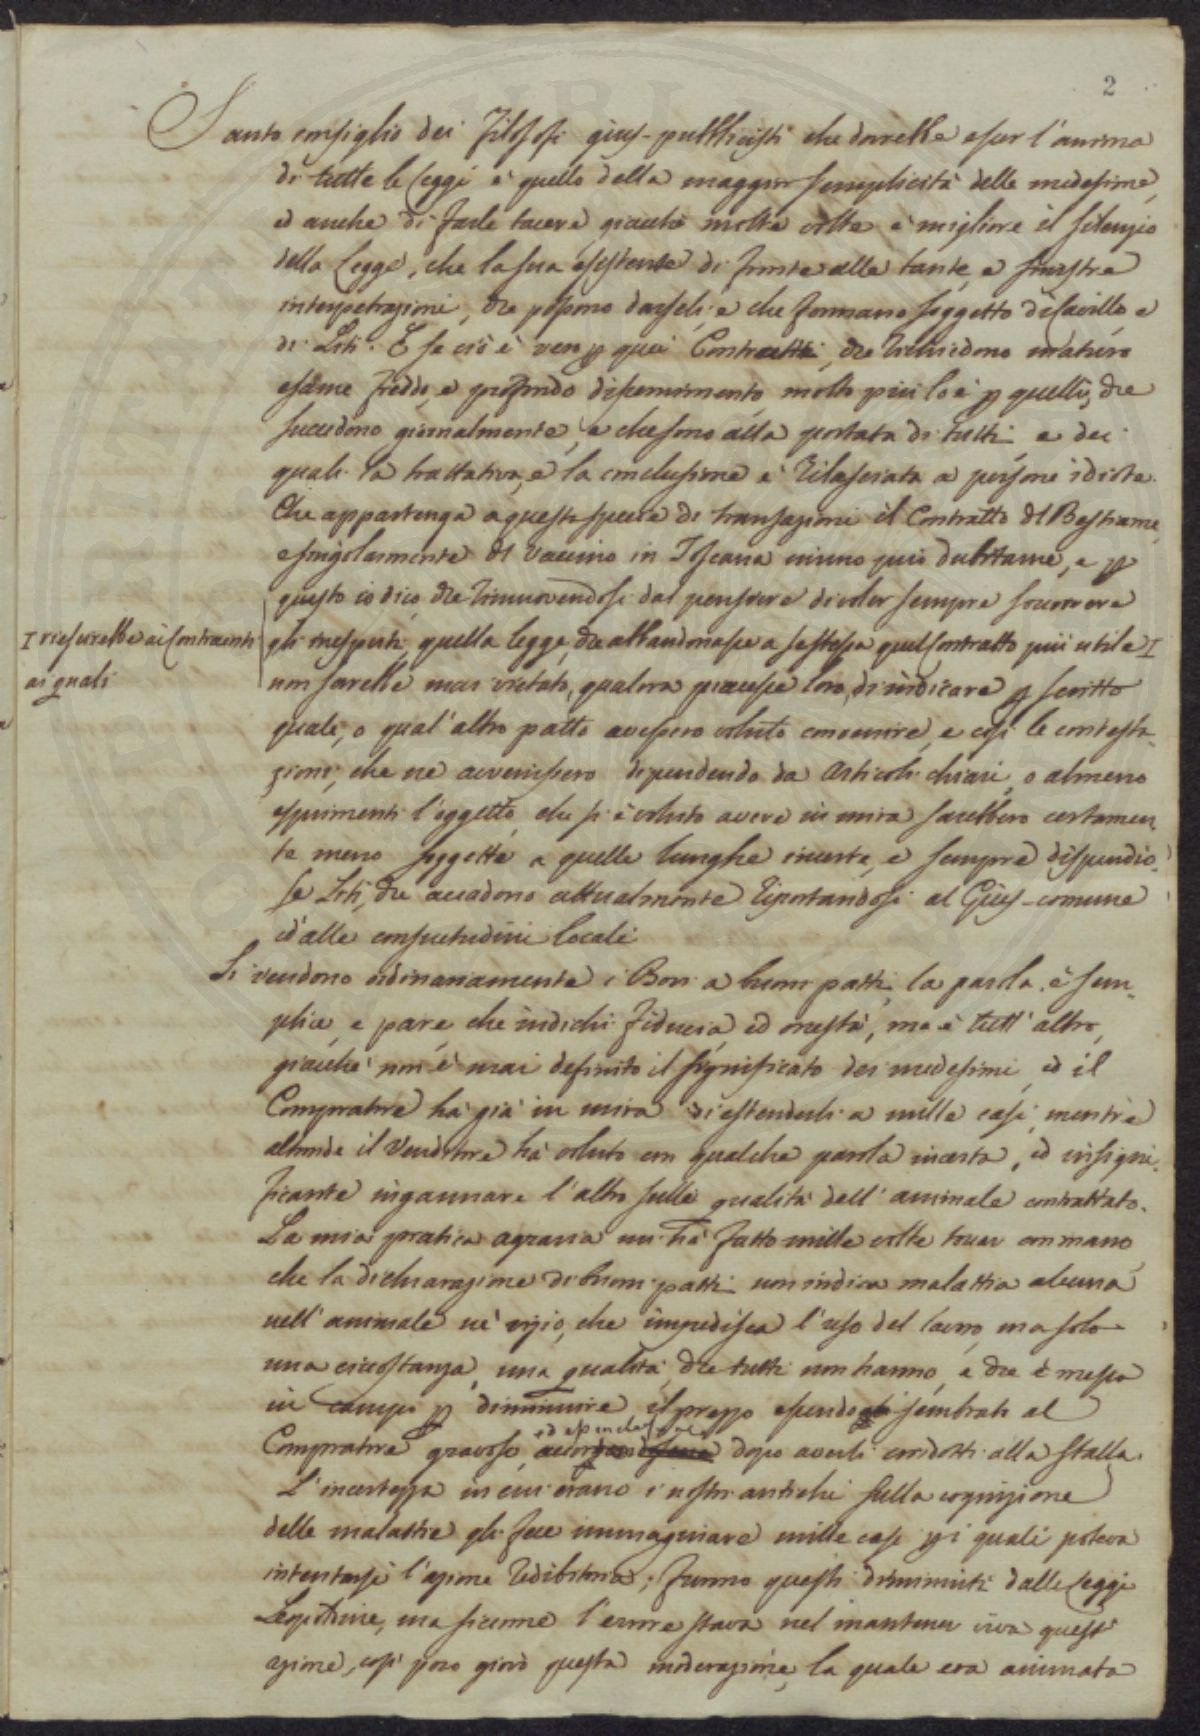 2
Santo consiglio dei Filosofi gius-pubblicisti che dovrebbe esser l'anima
di tutte le Leggi è quello della maggior semplicità delle medesime,
ed anche di farle tacere, giacchè molte volte è migliore il silenzio
della Legge, che la sua esistente di fronte alle tante, e sinistre
interpetrazioni, che possono darseli, e che formano soggetto di Cavillo e
di Liti. E se ciò è vero p quei Contratti, che richiedono maturo
esame freddo, e profondo discernimento, molto più lo è p quelli, che
succedono giornalmente, e che sono alla portata di tutti e dei
quali la trattativa, e la conclusione è rilasciata a persone idiote.
Che appartenga a questa specie di transazioni il Contratto del Bestiame,
e singolarmente del vaccino in Toscana niuno può dubitarne, e p
questo io dico, che rimuovendosi dal pensiere di voler sempre soccorrere
gli inesperti, quella legge, che abbandonasse a se stessa quel Contratto più utile I
I riescirebbe ai Contraenti
ai quali
non sarebbe mai vietato, qualora piacesse loro, di indicare p scritto
quale, o qual'altro patto avessero voluto convenire, e così le contesta-
zioni, che ne avvenissero dipendendo da articoli chiari, o almeno
esprimenti l'oggetto, che si è voluto avere in mira sarebbero certamen-
te meno soggette a quelle lunghe incerte, e sempre dispendio-
se Liti, che accadono attualmente riportandosi al Gius-comune
ed alle consuetudini locali
Si vendono ordinariamente i Bovi a buoni patti, la parola è sem-
plice, e pare che indichi fiducia, ed onestà, ma è tutt'altro,
giacchè non è mai definito il significato dei medesimi, ed il
Compratore ha già in mira di estenderli a mille casi, mentre
altronde il Venditore ha voluto con qualche parola incerta, ed insigni-
ficante ingannare l'altro sulle qualità dell'animale contrattato.
La mia pratica agraria mi ha fatto mille volte toccar con mano
che la dichiarazione di buoni patti non indica malattia alcuna
nell'animale nè vizio, che impedisca l'uso del lavoro, ma solo
una circostanza, una qualità, che tutti non hanno, e che è messa
in campo p diminuire il prezzo essendo sembrati al
Compratore gravoso, dopo averli condotti alla stalla.
L'incertezza in cui erano i nostri antichi sulla cognizione
delle malattie gli fece immaginare mille casi p i quali poteva
intentarsi l'azione redibitoria; furono questi diminuiti dalle Leggi
Leopoldine, ma siccome l'errore stava nel mantener viva quest'
azione, così poco giovò questa moderazione, la quale era animata